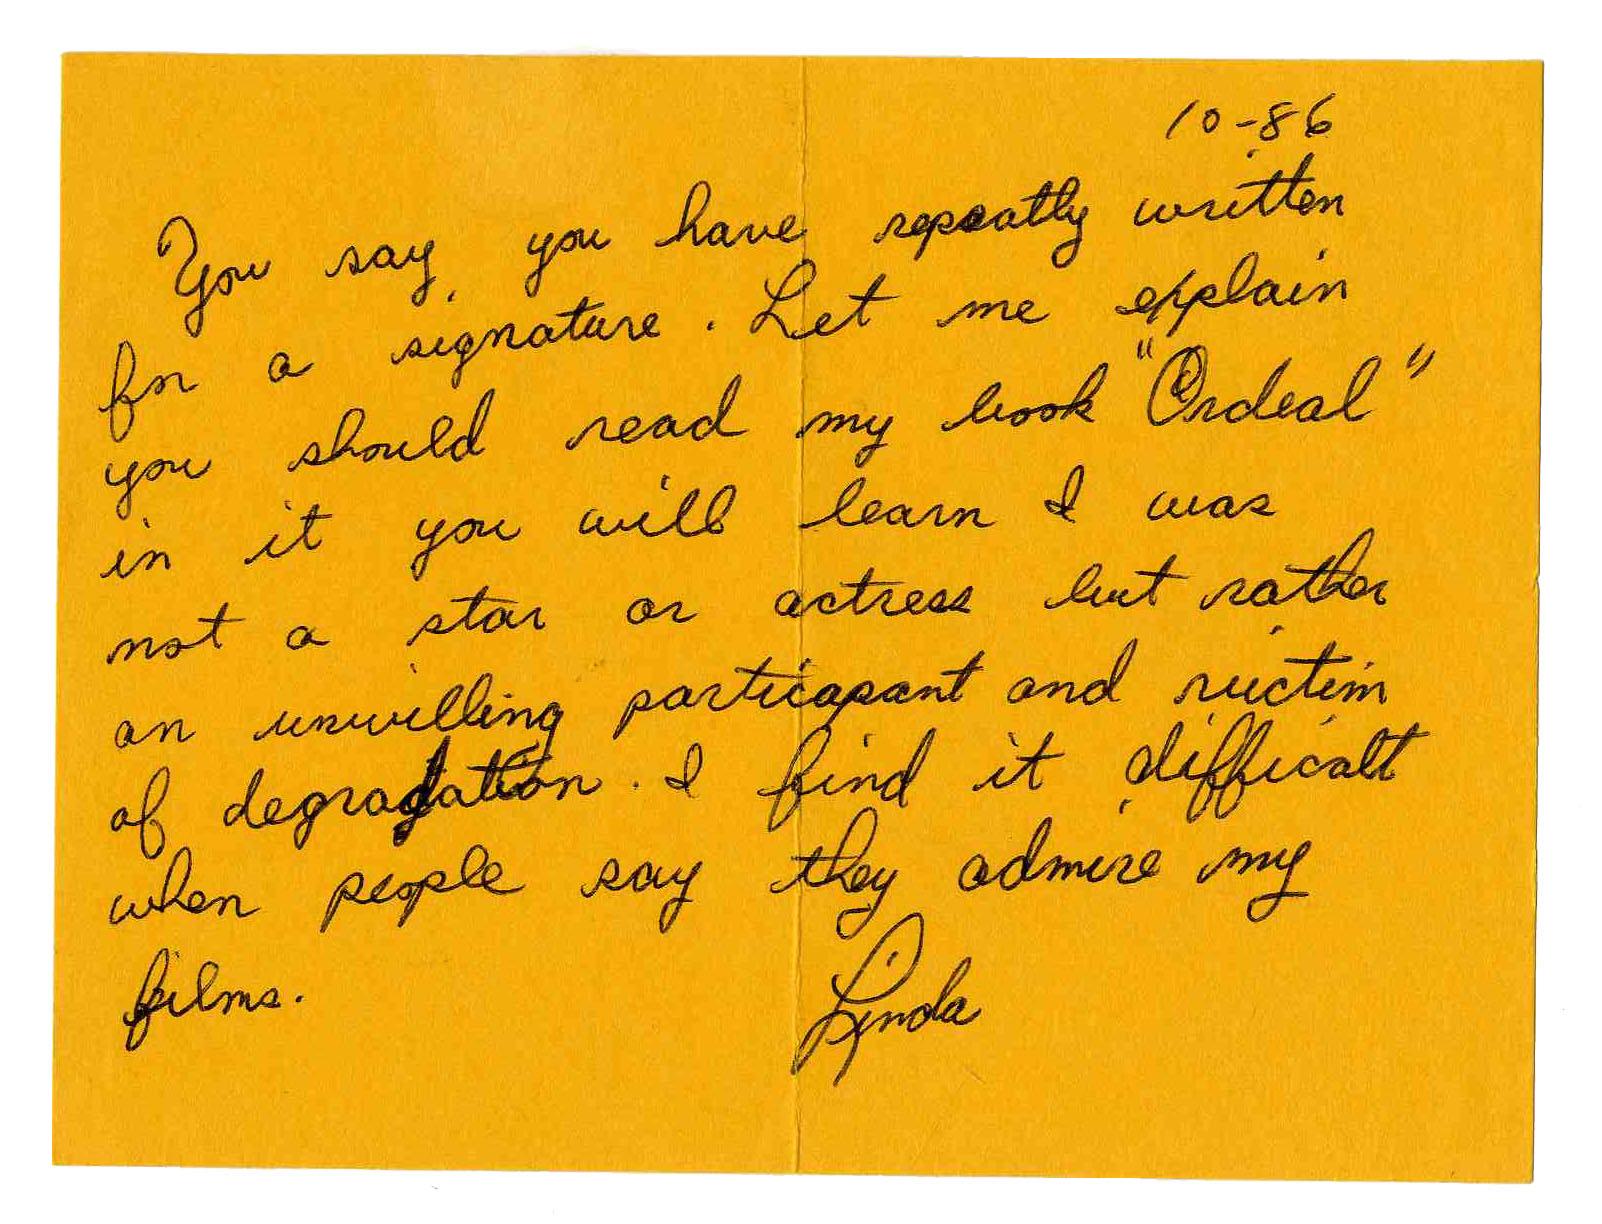 10-86
You say, you have repeatly written
for a signature. Let me explain
you should read my book "Ordeal"
in it you will learn I was
not a star or actress but rather
an unwilling particapant and victim
of degradation. I find it difficult
when people say they admire my
films.
Linda